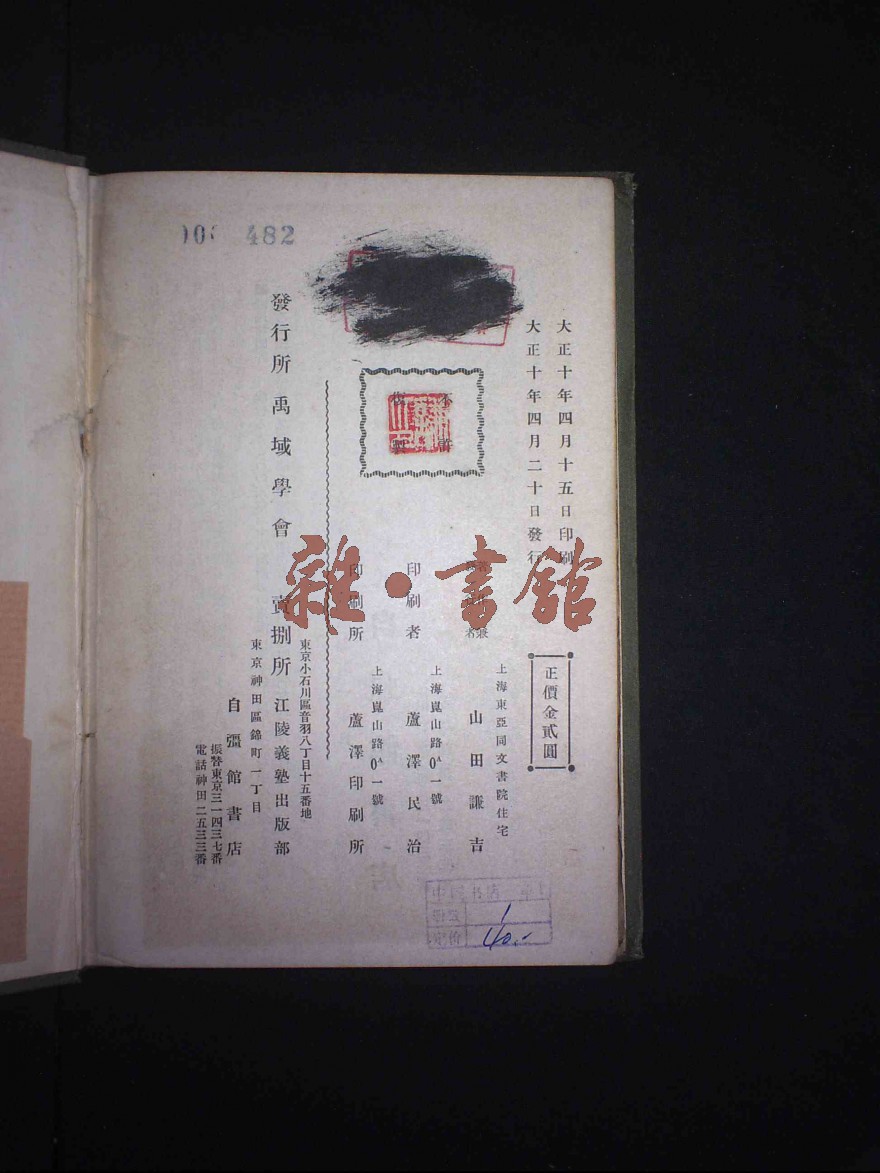 大正十年四月十五日印刷
大正十年四月二十日發行
正價金貳圓
上海東亞同文書院住宅
山田謙吉
印刷者
上海崑山路
蘆澤民治
印刷所
上海崑山路
蘆澤印刷所
不許
發行所 禹域學會
賣捌所
東京小石川區音羽八丁目十五番地
江陵義塾出版部
東京神田區錦町一丁目
自彊館書店
振替東京三一四三七番
電話神田二五三三番
482
雜·書館
1
40.-